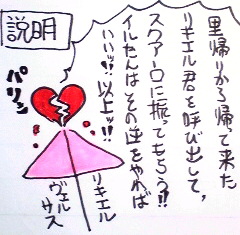 説明
里帰りから帰って来た
リキエル君を呼び出して、
スクアーロに振ってもらう!!
イルたんはその逆をやれば
いいッ!! 以上ッ!!
パリン
リキエル
ヴェルサス